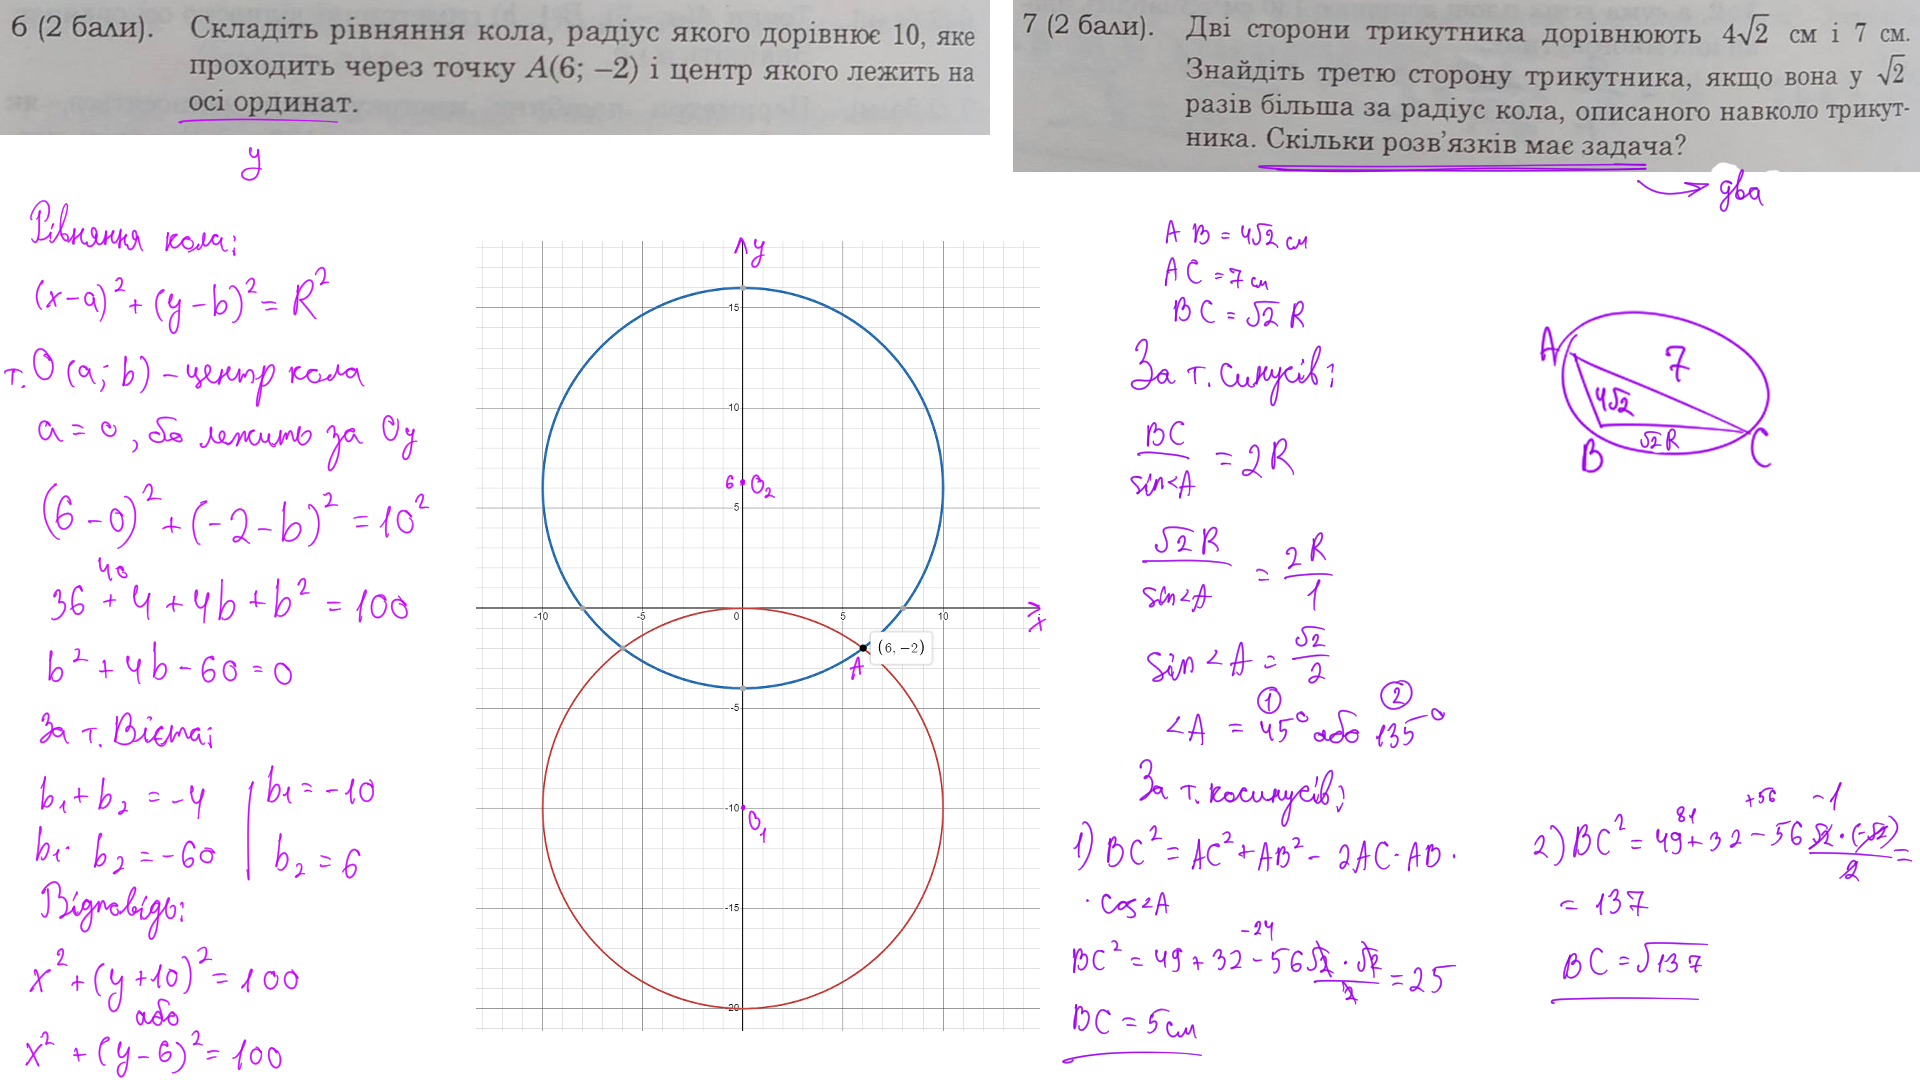 6 (2 бали). Складіть рівняння кола, радіус якого дорівнює 10, яке
проходить через точку A(6; −2) і центр якого лежить на
осі ординат.
y
Рівняння кола:
(x−a)² + (y−b)² = R²
т. O (a; b) – центр кола
a = 0, бо лежить за Oy
(6−0)² + (−2−b)² = 10²
40
36 + 4 + 4b + b² = 100
b² + 4b − 60 = 0
За т. Вієта:
b₁ + b₂ = −4 | b₁ = −10
b₁ · b₂ = −60 | b₂ = 6
Відповідь:
x² + (y+10)² = 100
або
x² + (y−6)² = 100
y
15
10
6 O₂
5
-10 -5 0 5 10
x
A (6, −2)
-5
-10
O₁
-15
-20
7 (2 бали). Дві сторони трикутника дорівнюють 4√2 см і 7 см.
Знайдіть третю сторону трикутника, якщо вона у √2
разів більша за радіус кола, описаного навколо трикут-
ника. Скільки розв’язків має задача?
два
AB = 4√2 см
AC = 7 см
BC = √2 R
За т. синусів:
BC / sin∠A = 2R
√2 R / sin∠A = 2R / 1
sin∠A = √2 / 2
① ②
∠A = 45° або 135°
За т. косинусів:
1) BC² = AC² + AB² − 2AC·AB·
· cos∠A
−24
BC² = 49 + 32 − 56√2 · √2 / 2 = 25
BC = 5 см
A
7
4√2
√2 R
B
C
81 +56 −1
2) BC² = 49 + 32 − 56 √2 · (−√2) / 2 =
= 137
BC = √137